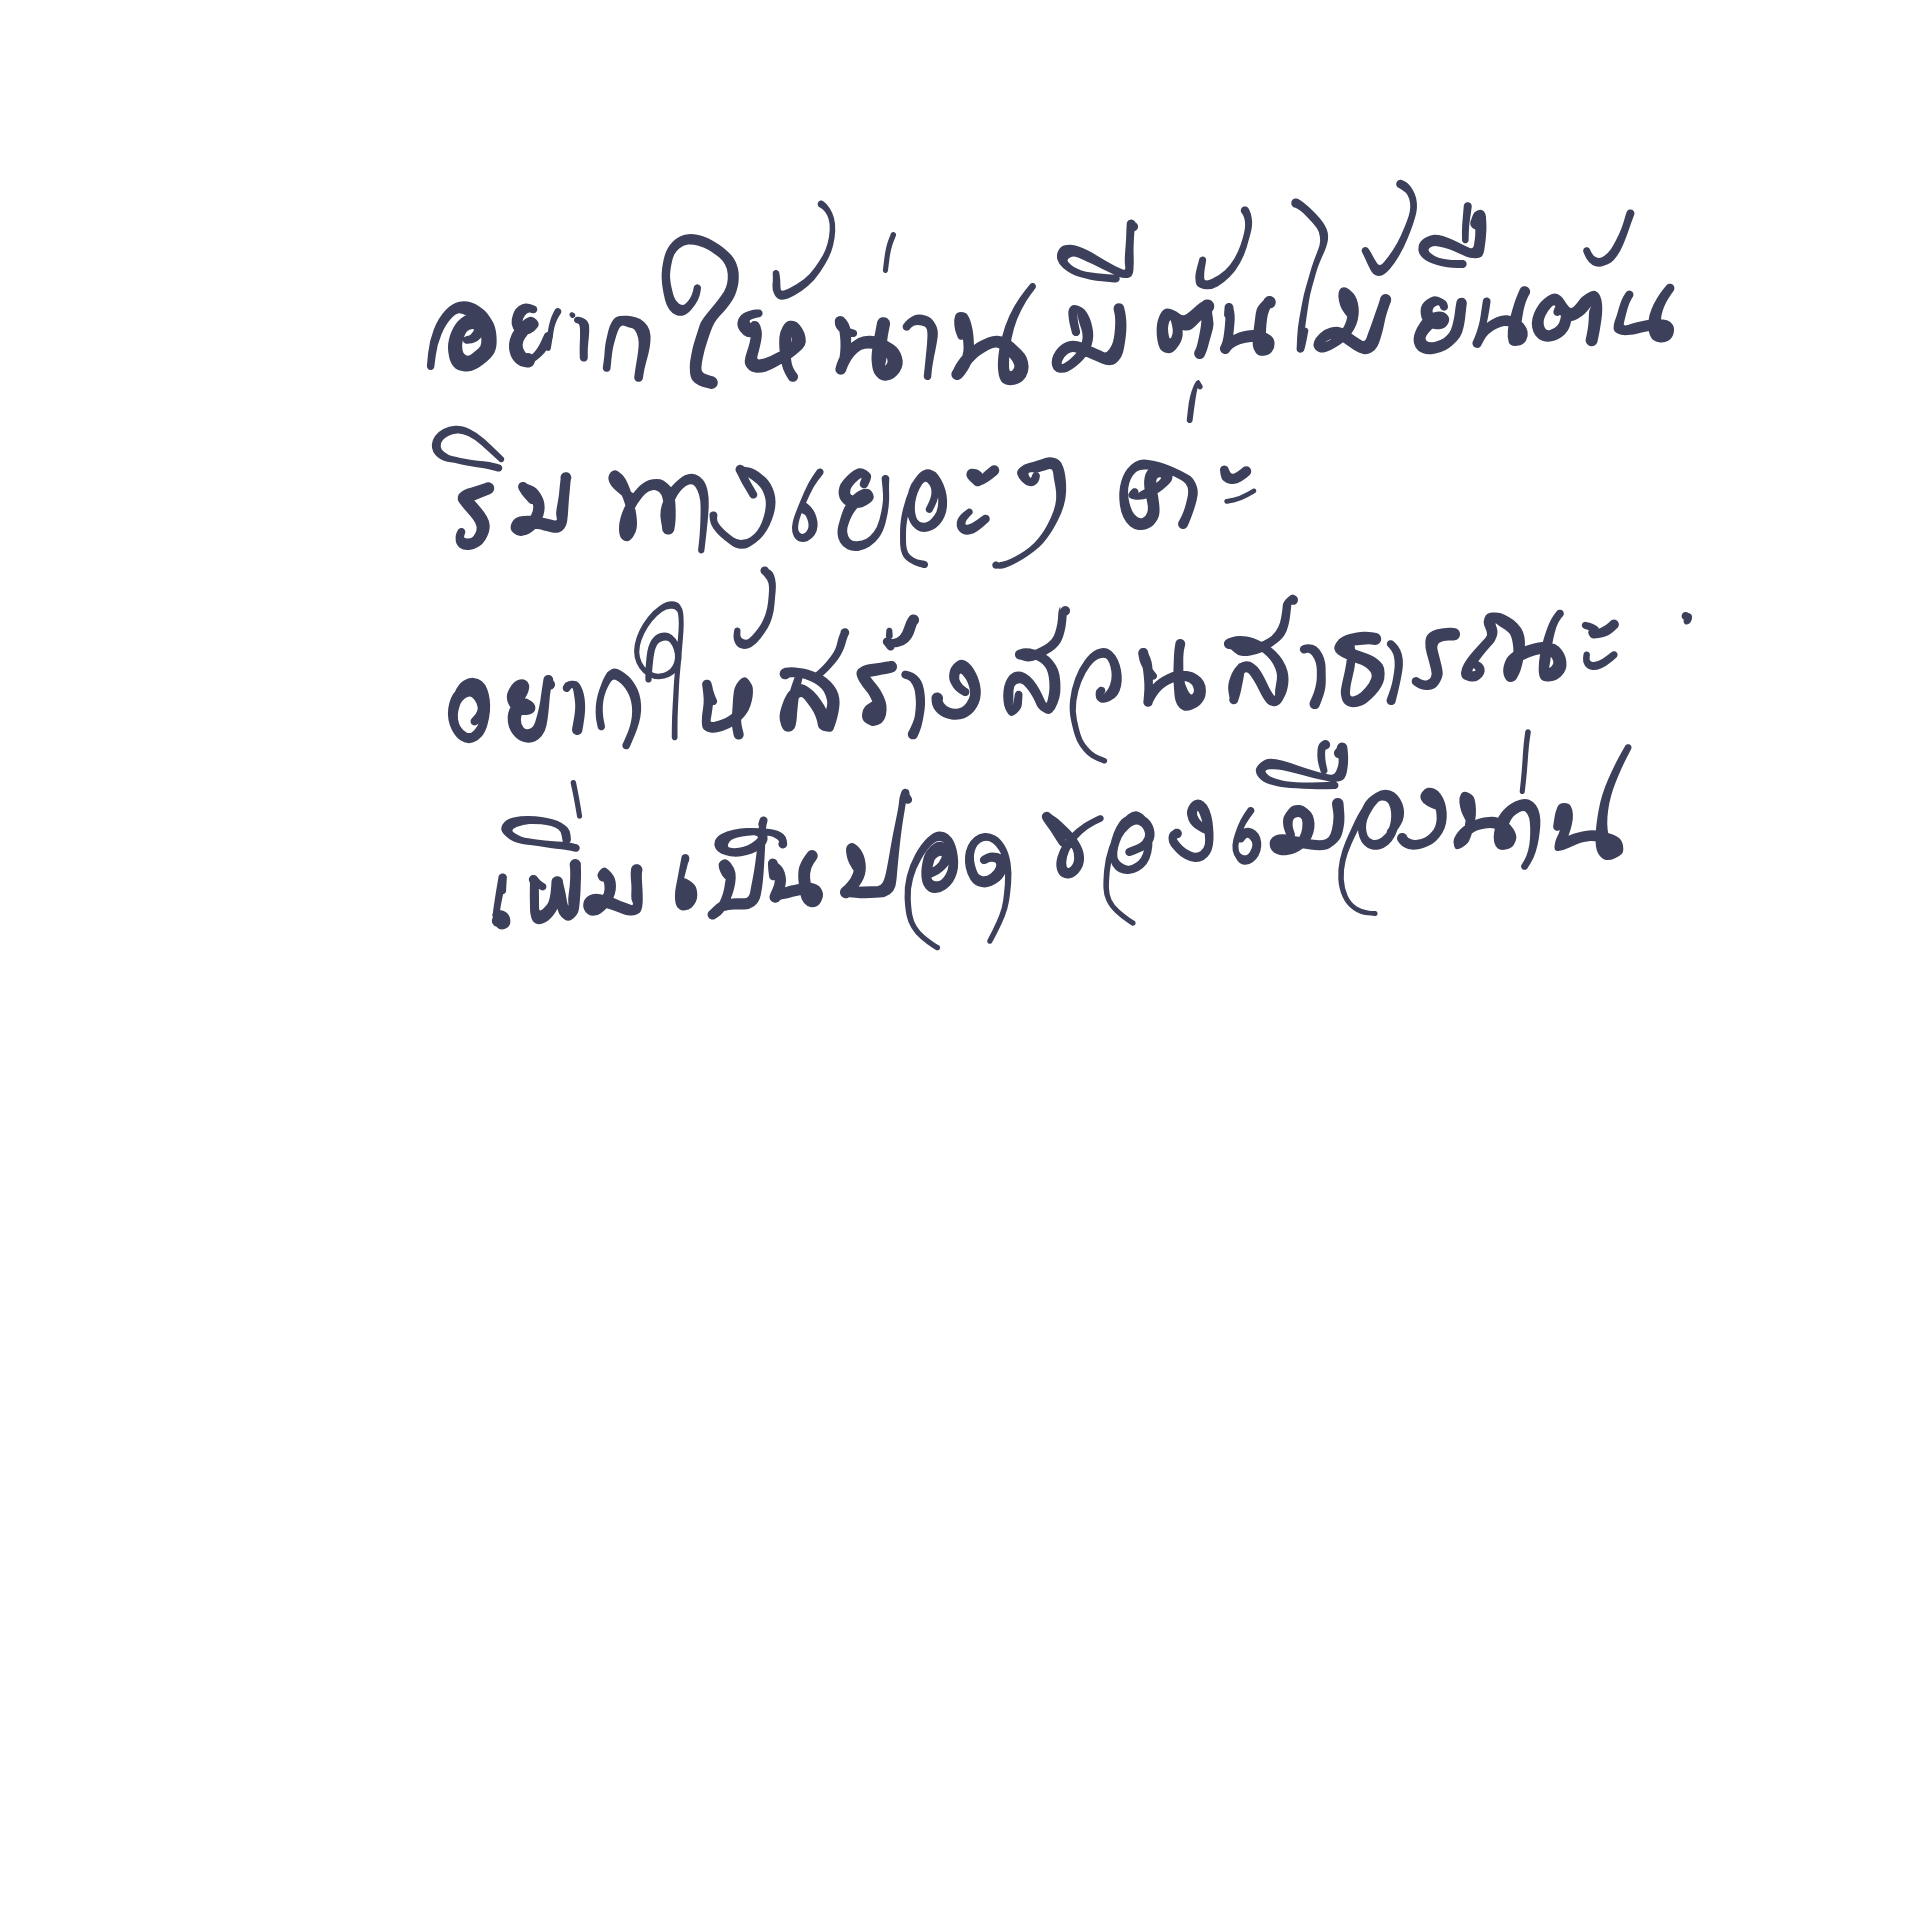 อยากให้น่านมีต้นไม้ยืนต้น
ริม ทางเยอะๆ ค่ะ
อยากให้สร้างสวนสาธารณะ
เพิ่ม เป็น ปอด ของเมืองน่าน